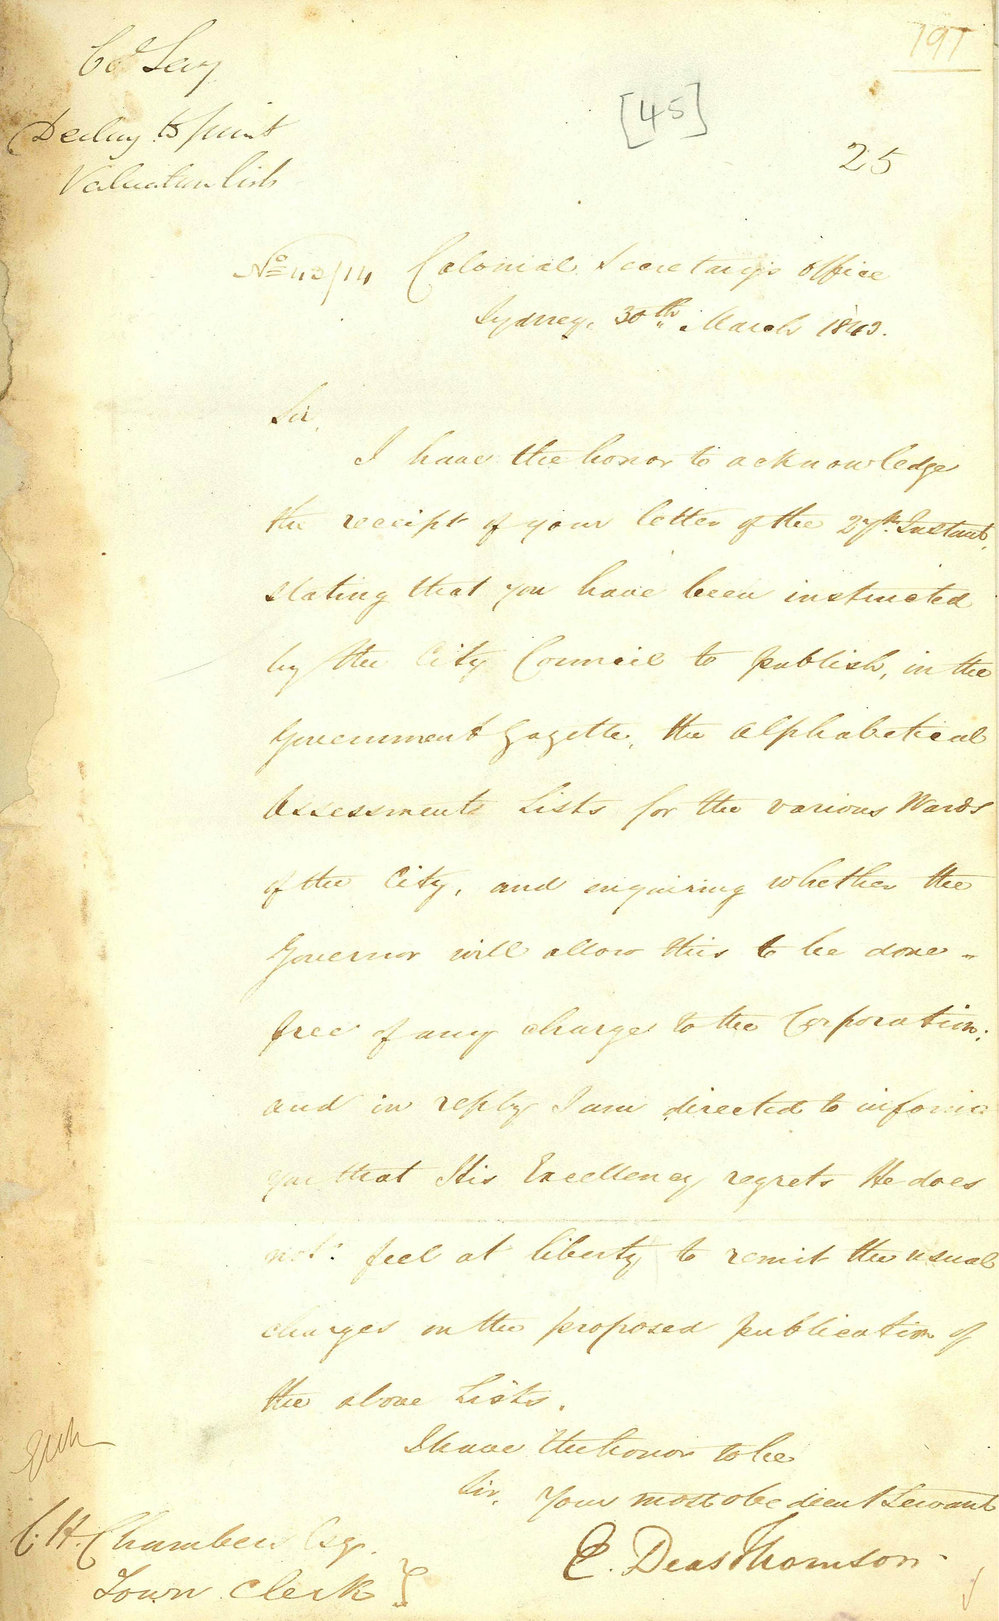 191
Col Secy
[45]
Declng to print
Valuation lists
25
No 43/14 Colonial Secretary's office
Sydney, 30th March 1843.
Sir,
I have the honor to acknowledge
the receipt of your letter of the 27th Instant,
stating that you have been instructed
by the City Council to publish, in the
Government Gazette, the Alphabetical
Assessment Lists for the various Wards
of the City, and enquiring whether the
Governor will allow this to be done
free of any charge to the Corporation;
and in reply I am directed to inform
you that His Excellency regrets He does
not feel at liberty to remit the usual
charges on the proposed publication of
the above Lists.
I have the honor to be
Sir, Your most obedient Servant
E. Deas Thomson
C. H. Chambers Esq.
Town Clerk